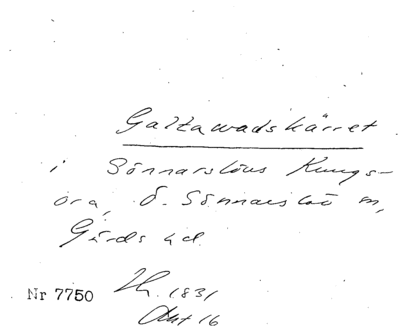 Galtawadskärret
i Sönnarslöus Kungs-
ora, Ö. Sönnarslöv m,
Gärds hd.
Nr 7750 Th. 1831
Akt 16